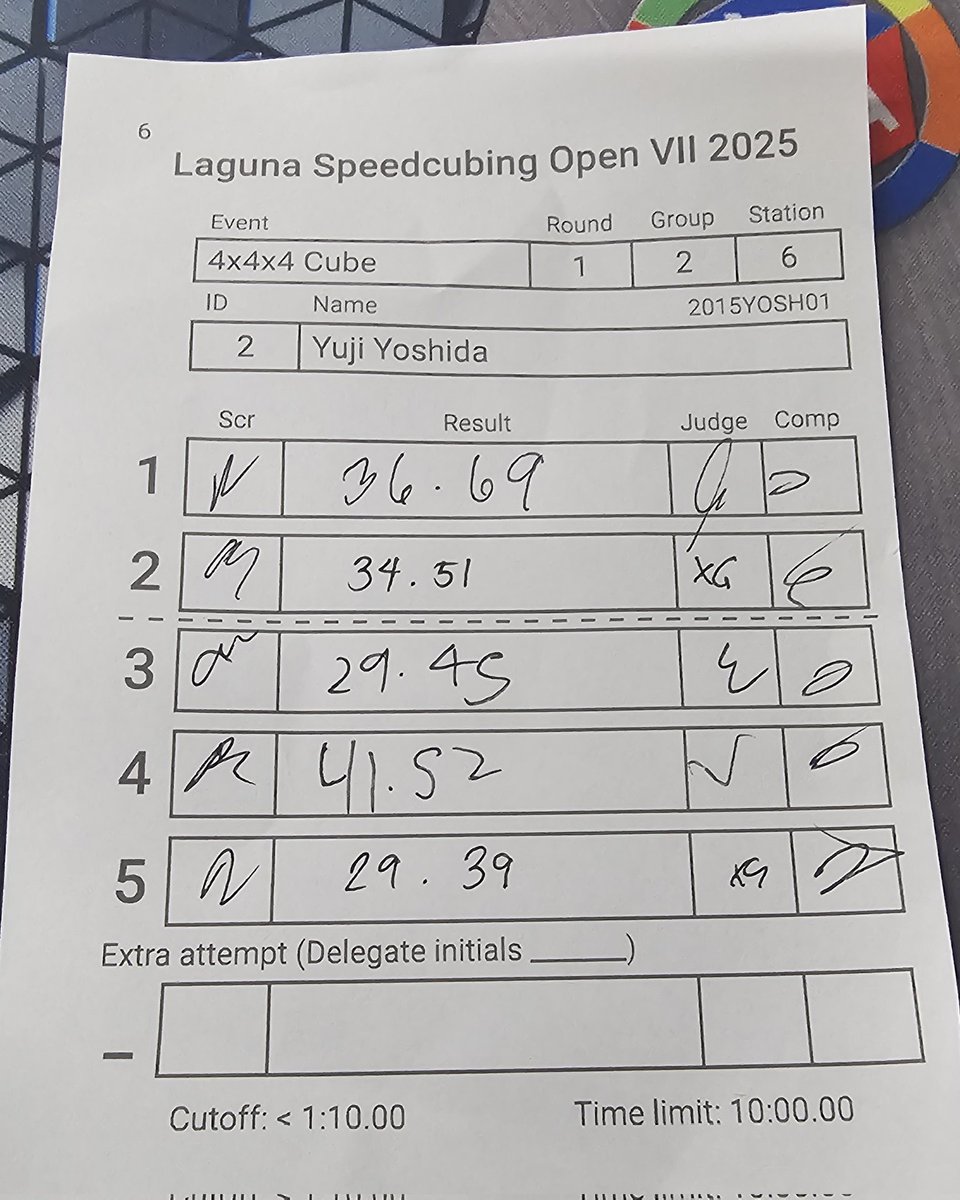 6
Laguna Speedcubing Open VII 2025
Event Round Group Station
4x4x4 Cube 1 2 6
ID Name 2015YOSH01
2 Yuji Yoshida
Scr Result Judge Comp
1 36.69
2 34.51 XG
3 29.45
4 41.52
5 29.39 XG
Extra attempt (Delegate initials ______)
_
Cutoff: < 1:10.00 Time limit: 10:00.00